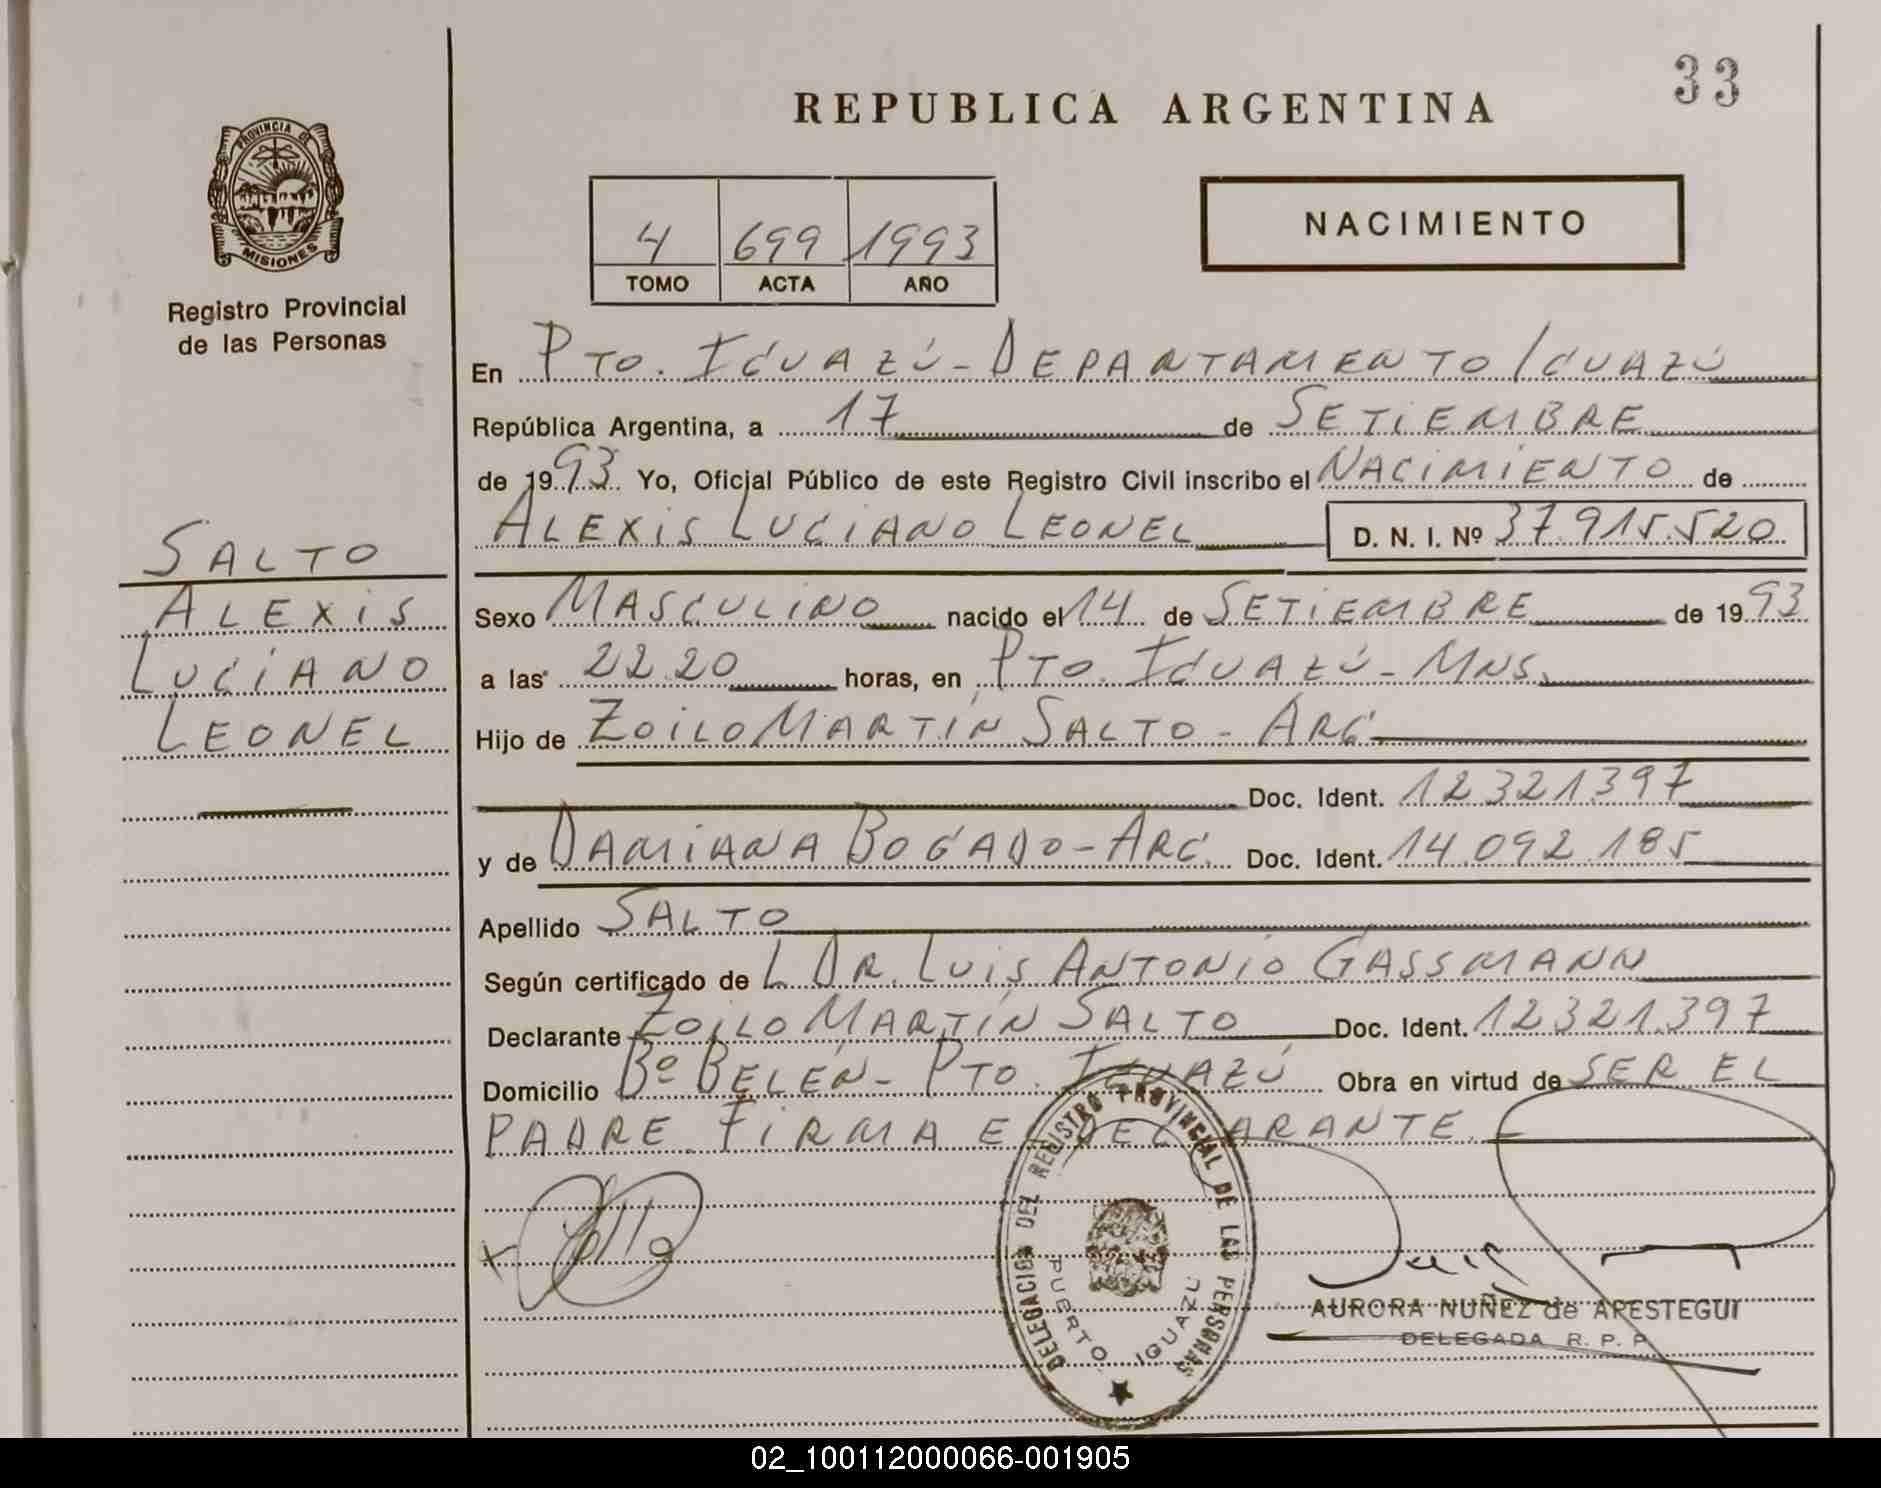 33
REPUBLICA ARGENTINA
PROVINCIA DE
MISIONES
Registro Provincial
de las Personas
4 699 1993
TOMO ACTA AÑO
NACIMIENTO
En PTO. IGUAZÚ - DEPARTAMENTO IGUAZÚ
República Argentina, a 17 de SETIEMBRE
de 1993 Yo, Oficial Público de este Registro Civil inscribo el NACIMIENTO de
ALEXIS LUCIANO LEONEL D. N. I. Nº 37.915.520
SALTO
ALEXIS
LUCIANO
LEONEL
Sexo MASCULINO nacido el 14 de SETIEMBRE de 1993
a las 22.20 horas, en PTO. IGUAZÚ - MNS.
Hijo de ZOILO MARTÍN SALTO - ARG
Doc. Ident. 12321397
y de DAMIANA BOGADO - ARG. Doc. Ident. 14.092.185
Apellido SALTO
Según certificado de L DR. LUIS ANTONIO GASSMANN
Declarante ZOILO MARTÍN SALTO Doc. Ident. 12321.397
Domicilio Bº BELÉN - PTO. IGUAZÚ Obra en virtud de SER EL
PADRE. FIRMA EL DECLARANTE.
DELEGACION DEL REGISTRO PROVINCIAL DE LAS PERSONAS
PUERTO IGUAZU
AURORA NUÑEZ de APESTEGUI
DELEGADA R. P. P.
02_100112000066-001905